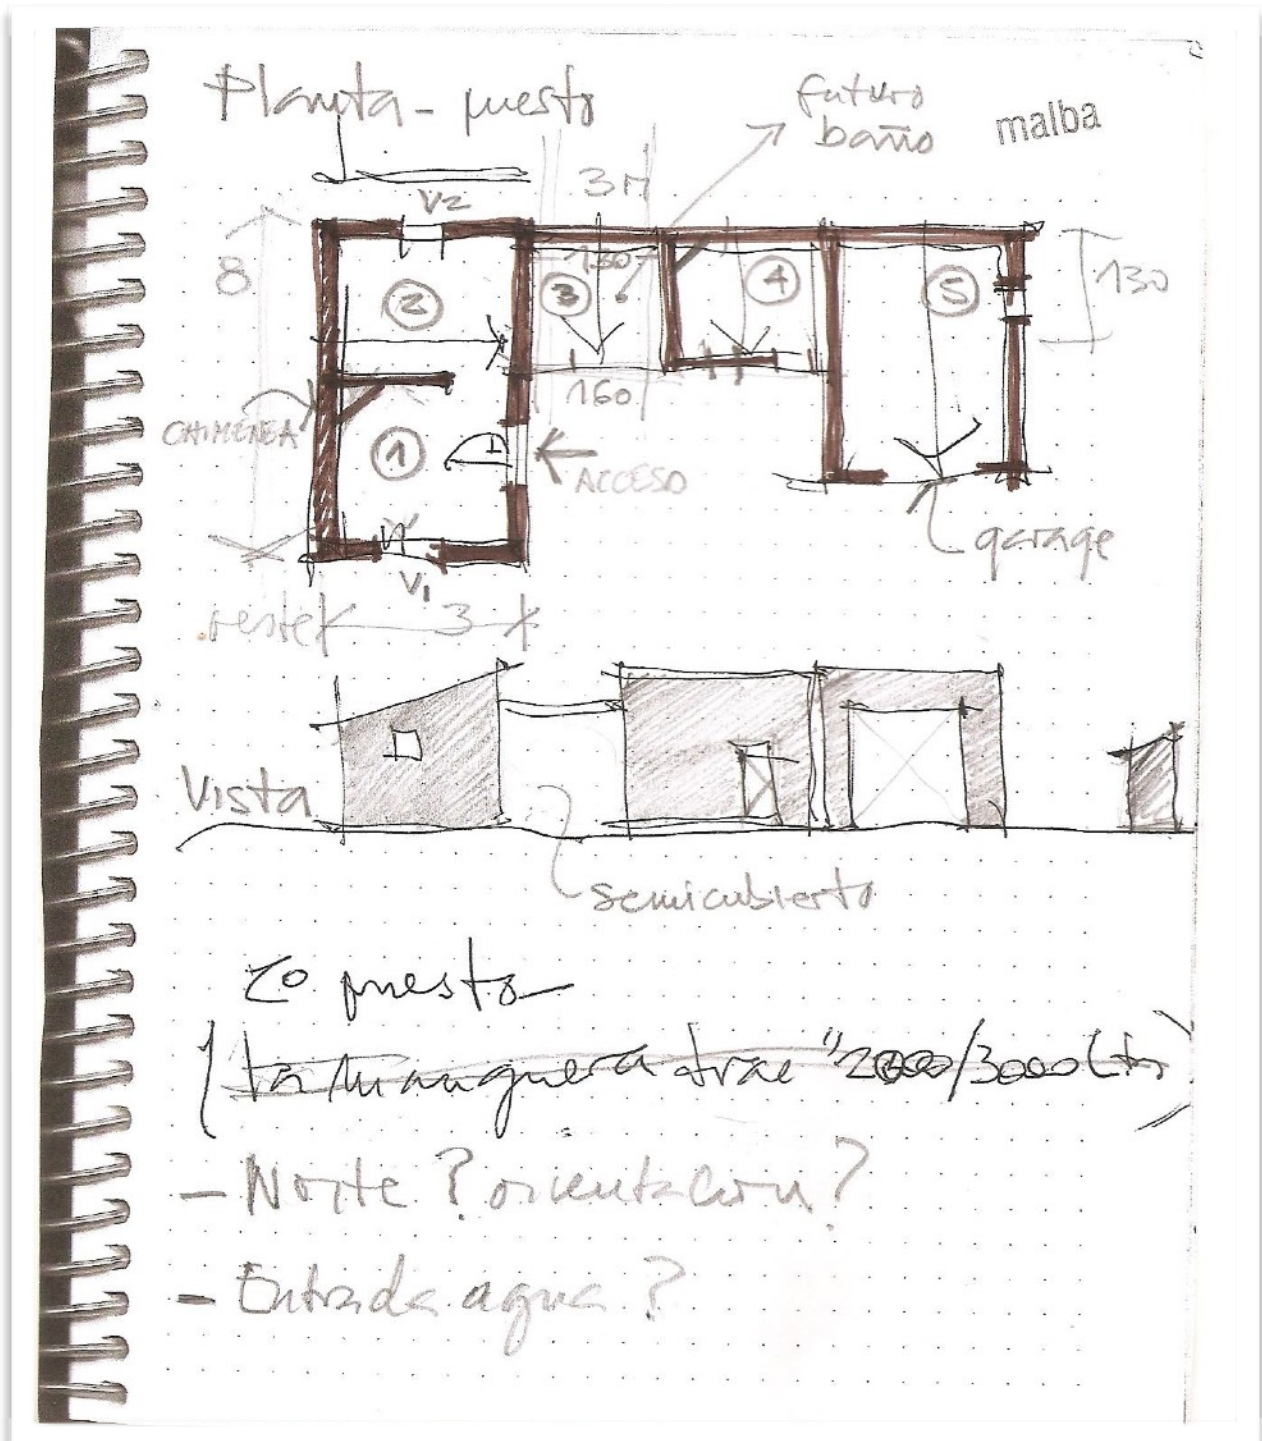 Planta - puesto
futuro
baño
malba
3M
V2
8
130
2
3
4
5
130
160
CHIMENEA
1
ACCESO
V1
garage
3
Vista
semicubierto
puesto
manguera trae "2000/3000 Lts)
- Norte? orientacion?
- Entrada agua?